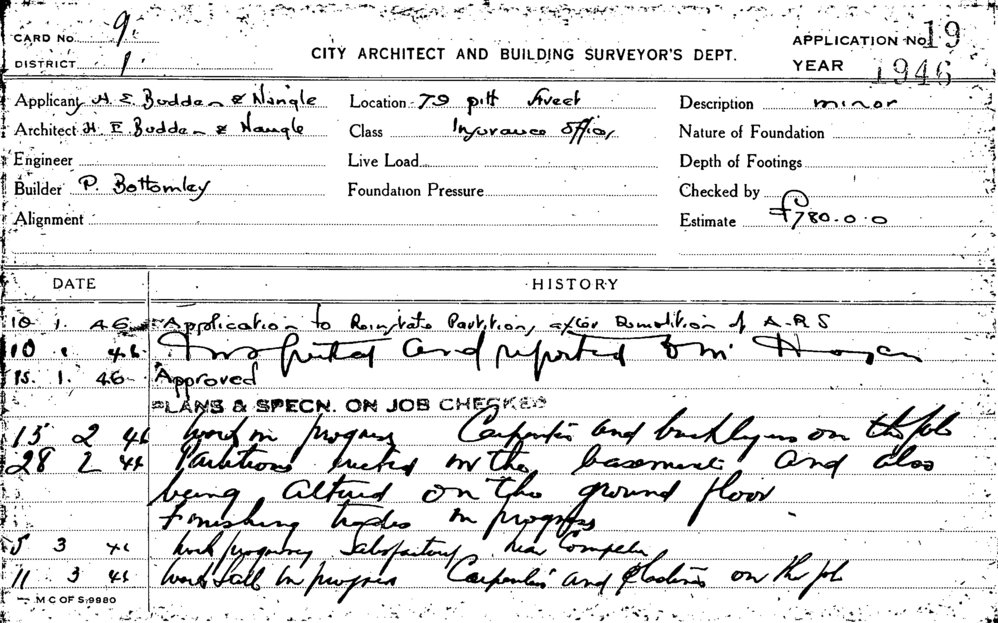 CARD No. 9. CITY ARCHITECT AND BUILDING SURVEYOR'S DEPT. APPLICATION No. 19
DISTRICT 1. YEAR 1946
Applicant H. E. Budden & Nangle Location 79 pitt Street Description minor
Architect H E Budden & Nangle Class Insurance Office, Nature of Foundation
Engineer Live Load Depth of Footings
Builder P. Bottomley Foundation Pressure Checked by
Alignment Estimate £780.0.0
DATE HISTORY
10 1. 46 Application to Reinstate Partition, after Demolition of A.R.S
10 1 46 Inspected and reported to Mr
15. 1. 46 Approved
PLANS & SPECN. ON JOB CHECKED
15 2 46 Work in progress Carpenters and bricklayers on the job
28 2 46 Partitions erected in the basement and also
being altered on the ground floor
Finishing trades in progress
5 3 46 Work progressing Satisfactory near Completion
11 3 46 Work still in progress Carpenters and Plasterers on the job
M C OF S 9980